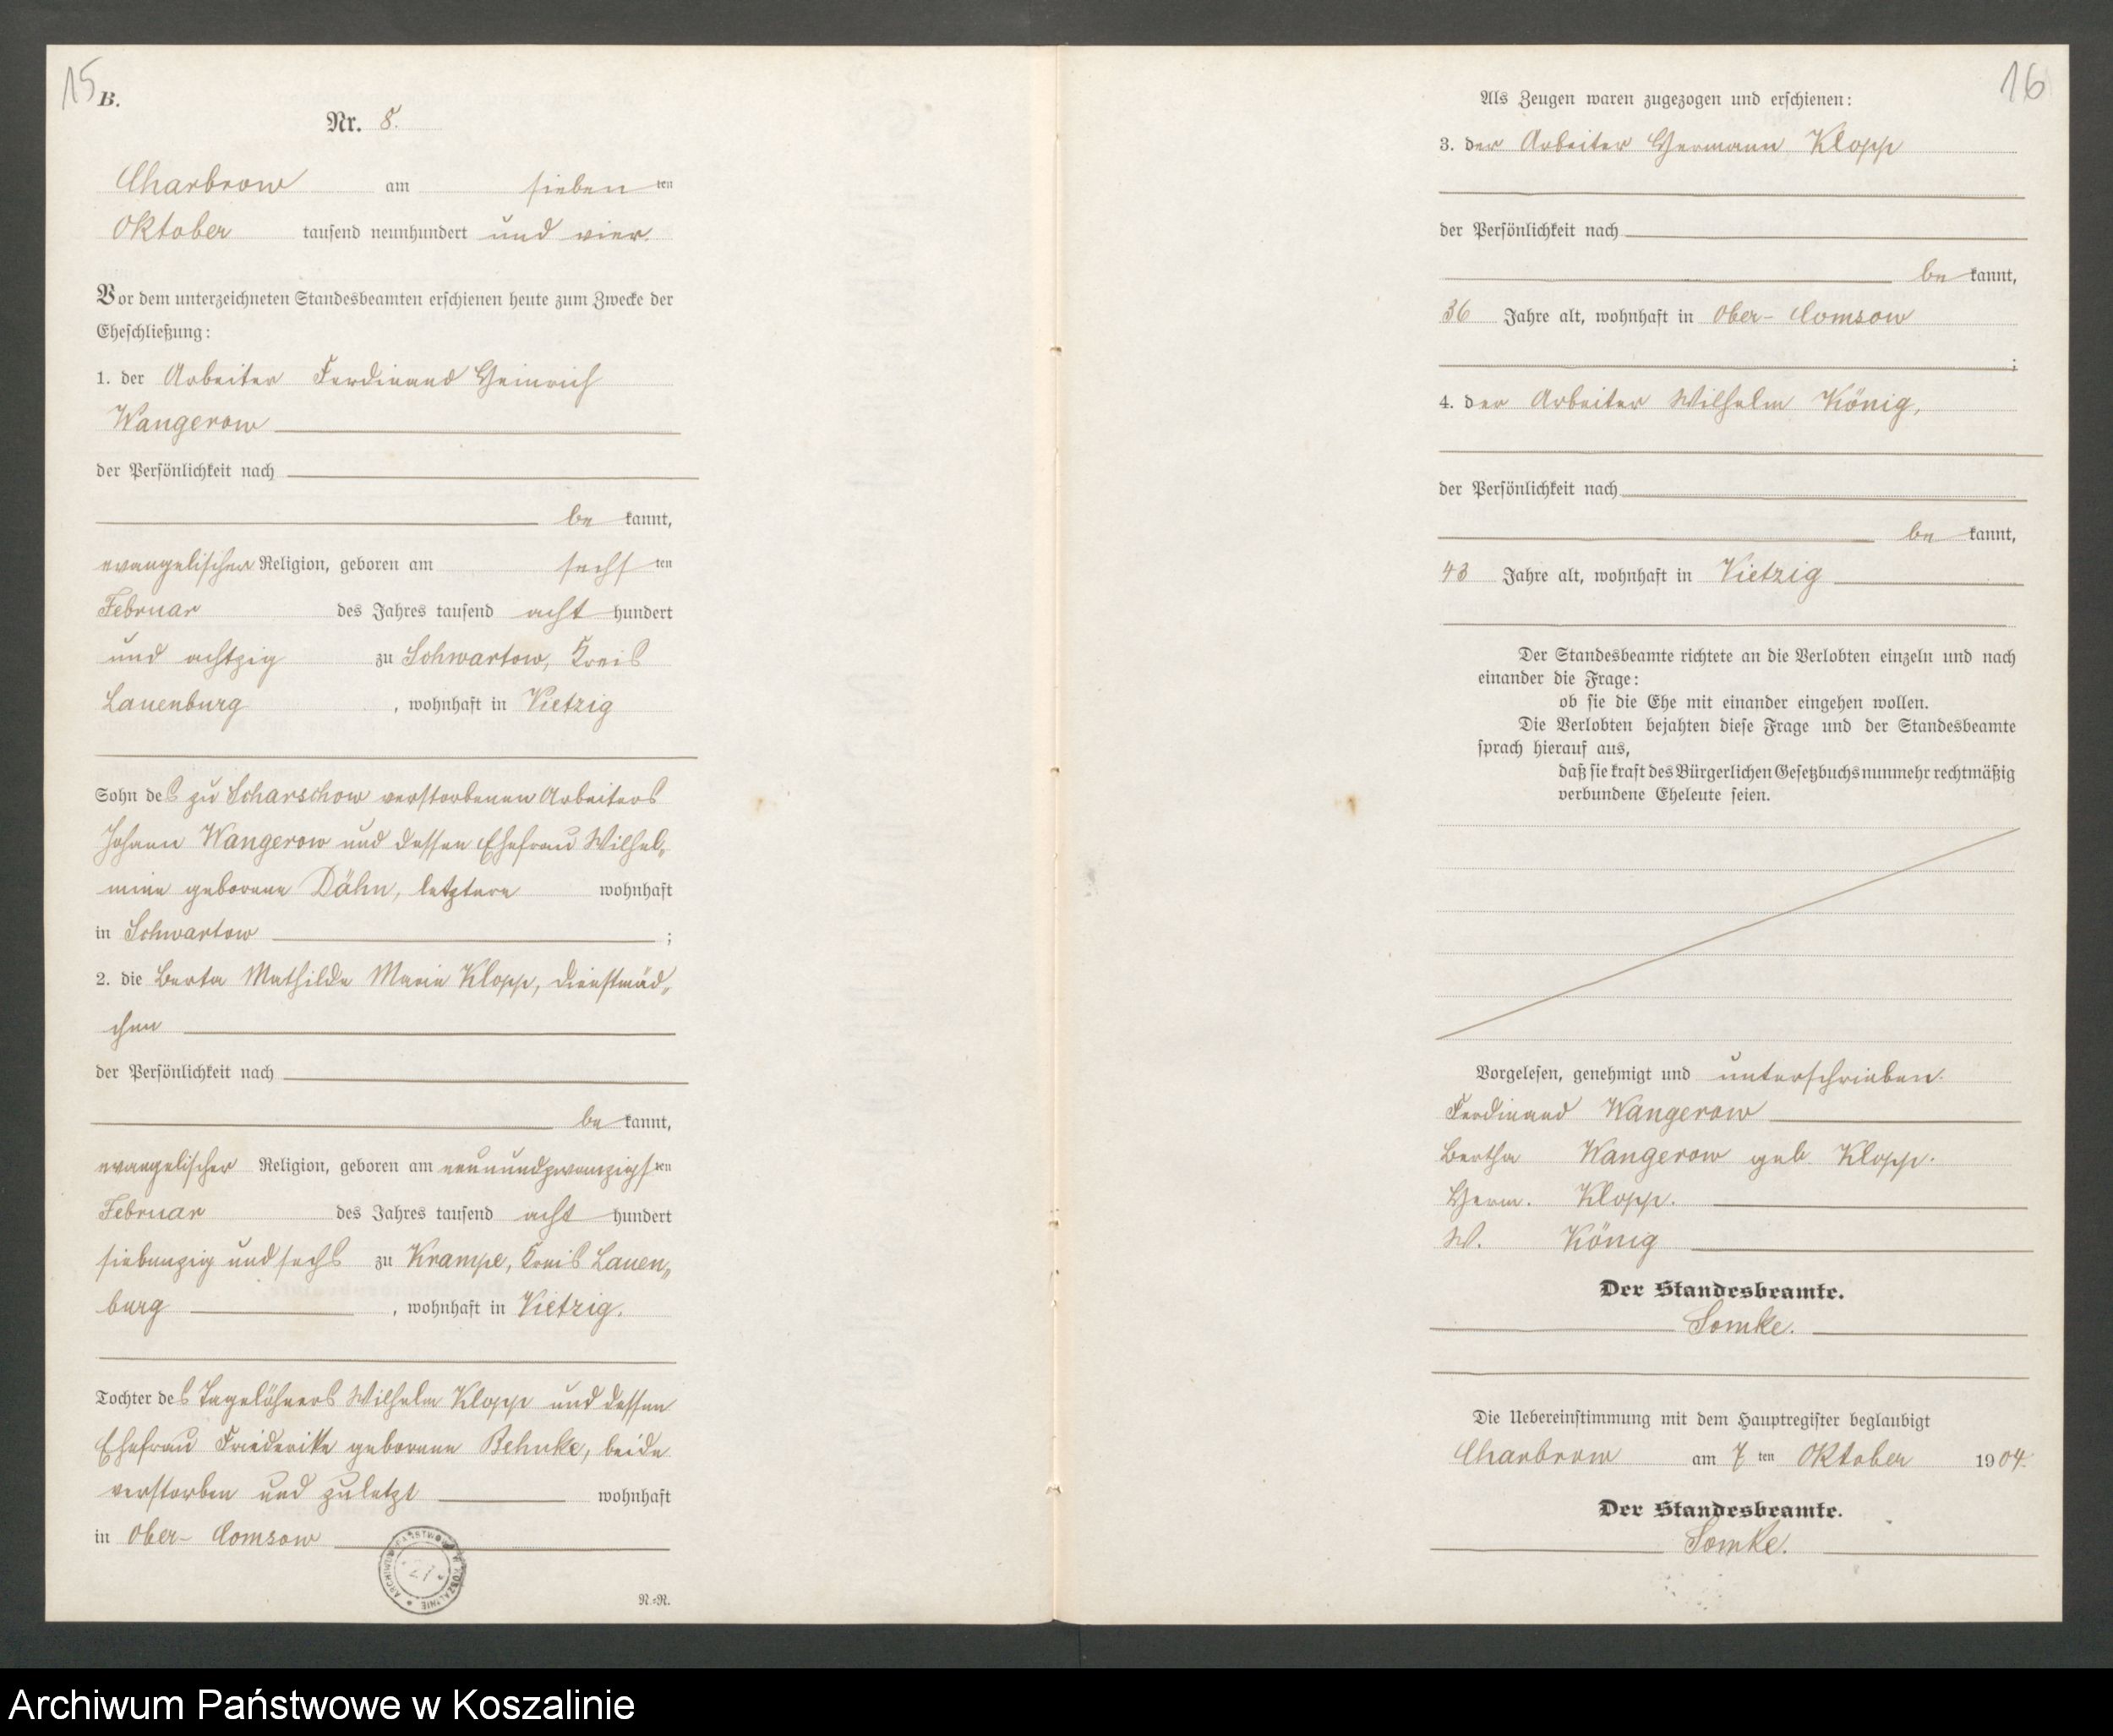 15
B.
Nr. 8.
Charbrow am sieben ten
Oktober tausend neunhundert und vier.
Vor dem unterzeichneten Standesbeamten erschienen heute zum Zwecke der
Eheschließung:
1. der Arbeiter Ferdinand Heinrich
Wangerow
der Persönlichkeit nach
be kannt,
evangelischer Religion, geboren am sechs ten
Februar des Jahres tausend acht hundert
und achtzig zu Schwartow, Kreis
Lauenburg, wohnhaft in Vietzig
Sohn des zu Scharschow verstorbenen Arbeiters
Johann Wangerow und dessen Ehefrau Wilhel„
mine geborene Dähn, letztere wohnhaft
in Schwartow ;
2. die Berta Mathilde Marie Klopp, Dienstmäd„
chen
der Persönlichkeit nach
be kannt,
evangelischer Religion, geboren am neunundzwanzigs ten
Februar des Jahres tausend acht hundert
siebenzig und sechs zu Krampe, Kreis Lauen„
burg , wohnhaft in Vietzig.
Tochter des Tagelöhners Wilhelm Klopp und dessen
Ehefrau Friederike geborene Behnke, beide
verstorben und zuletzt wohnhaft
in Ober- Comsow
ARCHIWUM PAŃSTWOWE W KOSZALINIE
21
N.=R.
16
Als Zeugen waren zugezogen und erschienen:
3. der Arbeiter Hermann Klopp
der Persönlichkeit nach
be kannt,
36 Jahre alt, wohnhaft in Ober- Comsow
;
4. der Arbeiter Wilhelm König,
der Persönlichkeit nach
be kannt,
43 Jahre alt, wohnhaft in Vietzig
Der Standesbeamte richtete an die Verlobten einzeln und nach
einander die Frage:
ob sie die Ehe mit einander eingehen wollen.
Die Verlobten bejahten diese Frage und der Standesbeamte
sprach hierauf aus,
daß sie kraft des Bürgerlichen Gesetzbuchs nunmehr rechtmäßig
verbundene Eheleute seien.
Vorgelesen, genehmigt und unterschrieben.
Ferdinand Wangerow
Bertha Wangerow geb. Klopp.
Herm. Klopp.
W. König
Der Standesbeamte.
Somke.
Die Uebereinstimmung mit dem Hauptregister beglaubigt
Charbrow am 7 ten Oktober 1904.
Der Standesbeamte.
Somke.
Archiwum Państwowe w Koszalinie